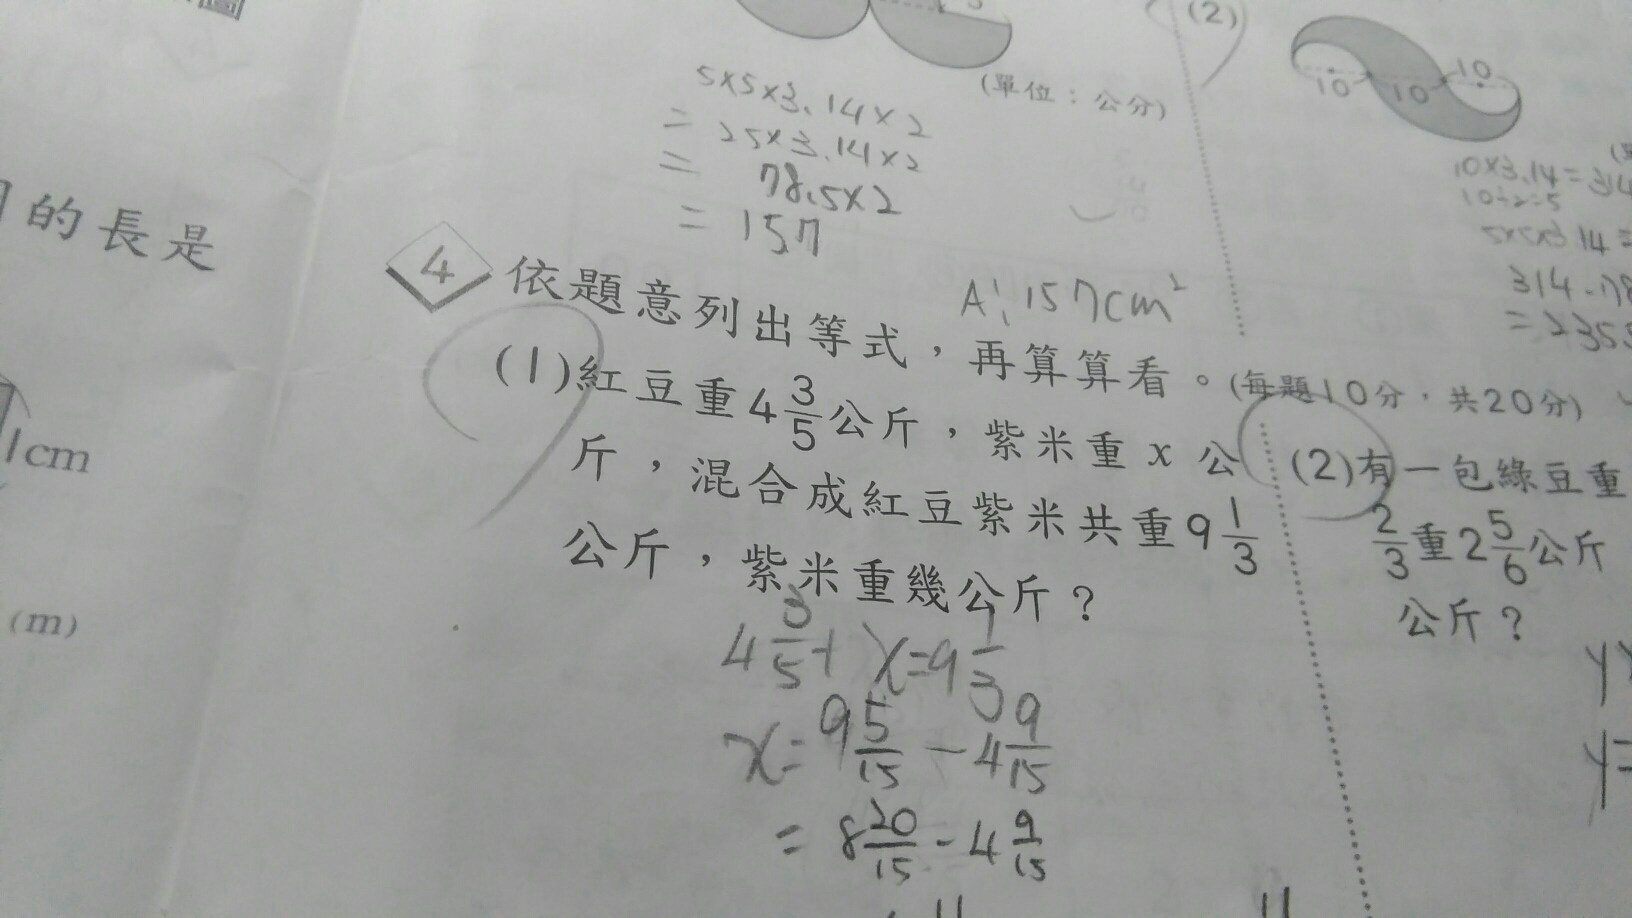 圖
的長是
1cm
(m)
5
(單位：公分)
5×5×3.14×2
= 25×3.14×2
= 78.5×2
= 157
A: 157cm²
(2)
10 10 10
10×3.14=314
10÷2=5
5×5×3.14=
314-78
=235.5
4 依題意列出等式，再算算看。(每題10分，共20分)
(1)紅豆重4 3/5公斤，紫米重 x 公
斤，混合成紅豆紫米共重9 1/3
公斤，紫米重幾公斤？
4 3/5+x=9 1/3
x=9 5/15-4 9/15
=8 20/15-4 9/15
11
11
(2)有一包綠豆重
2/3重2 5/6公斤
公斤？
y×
y=